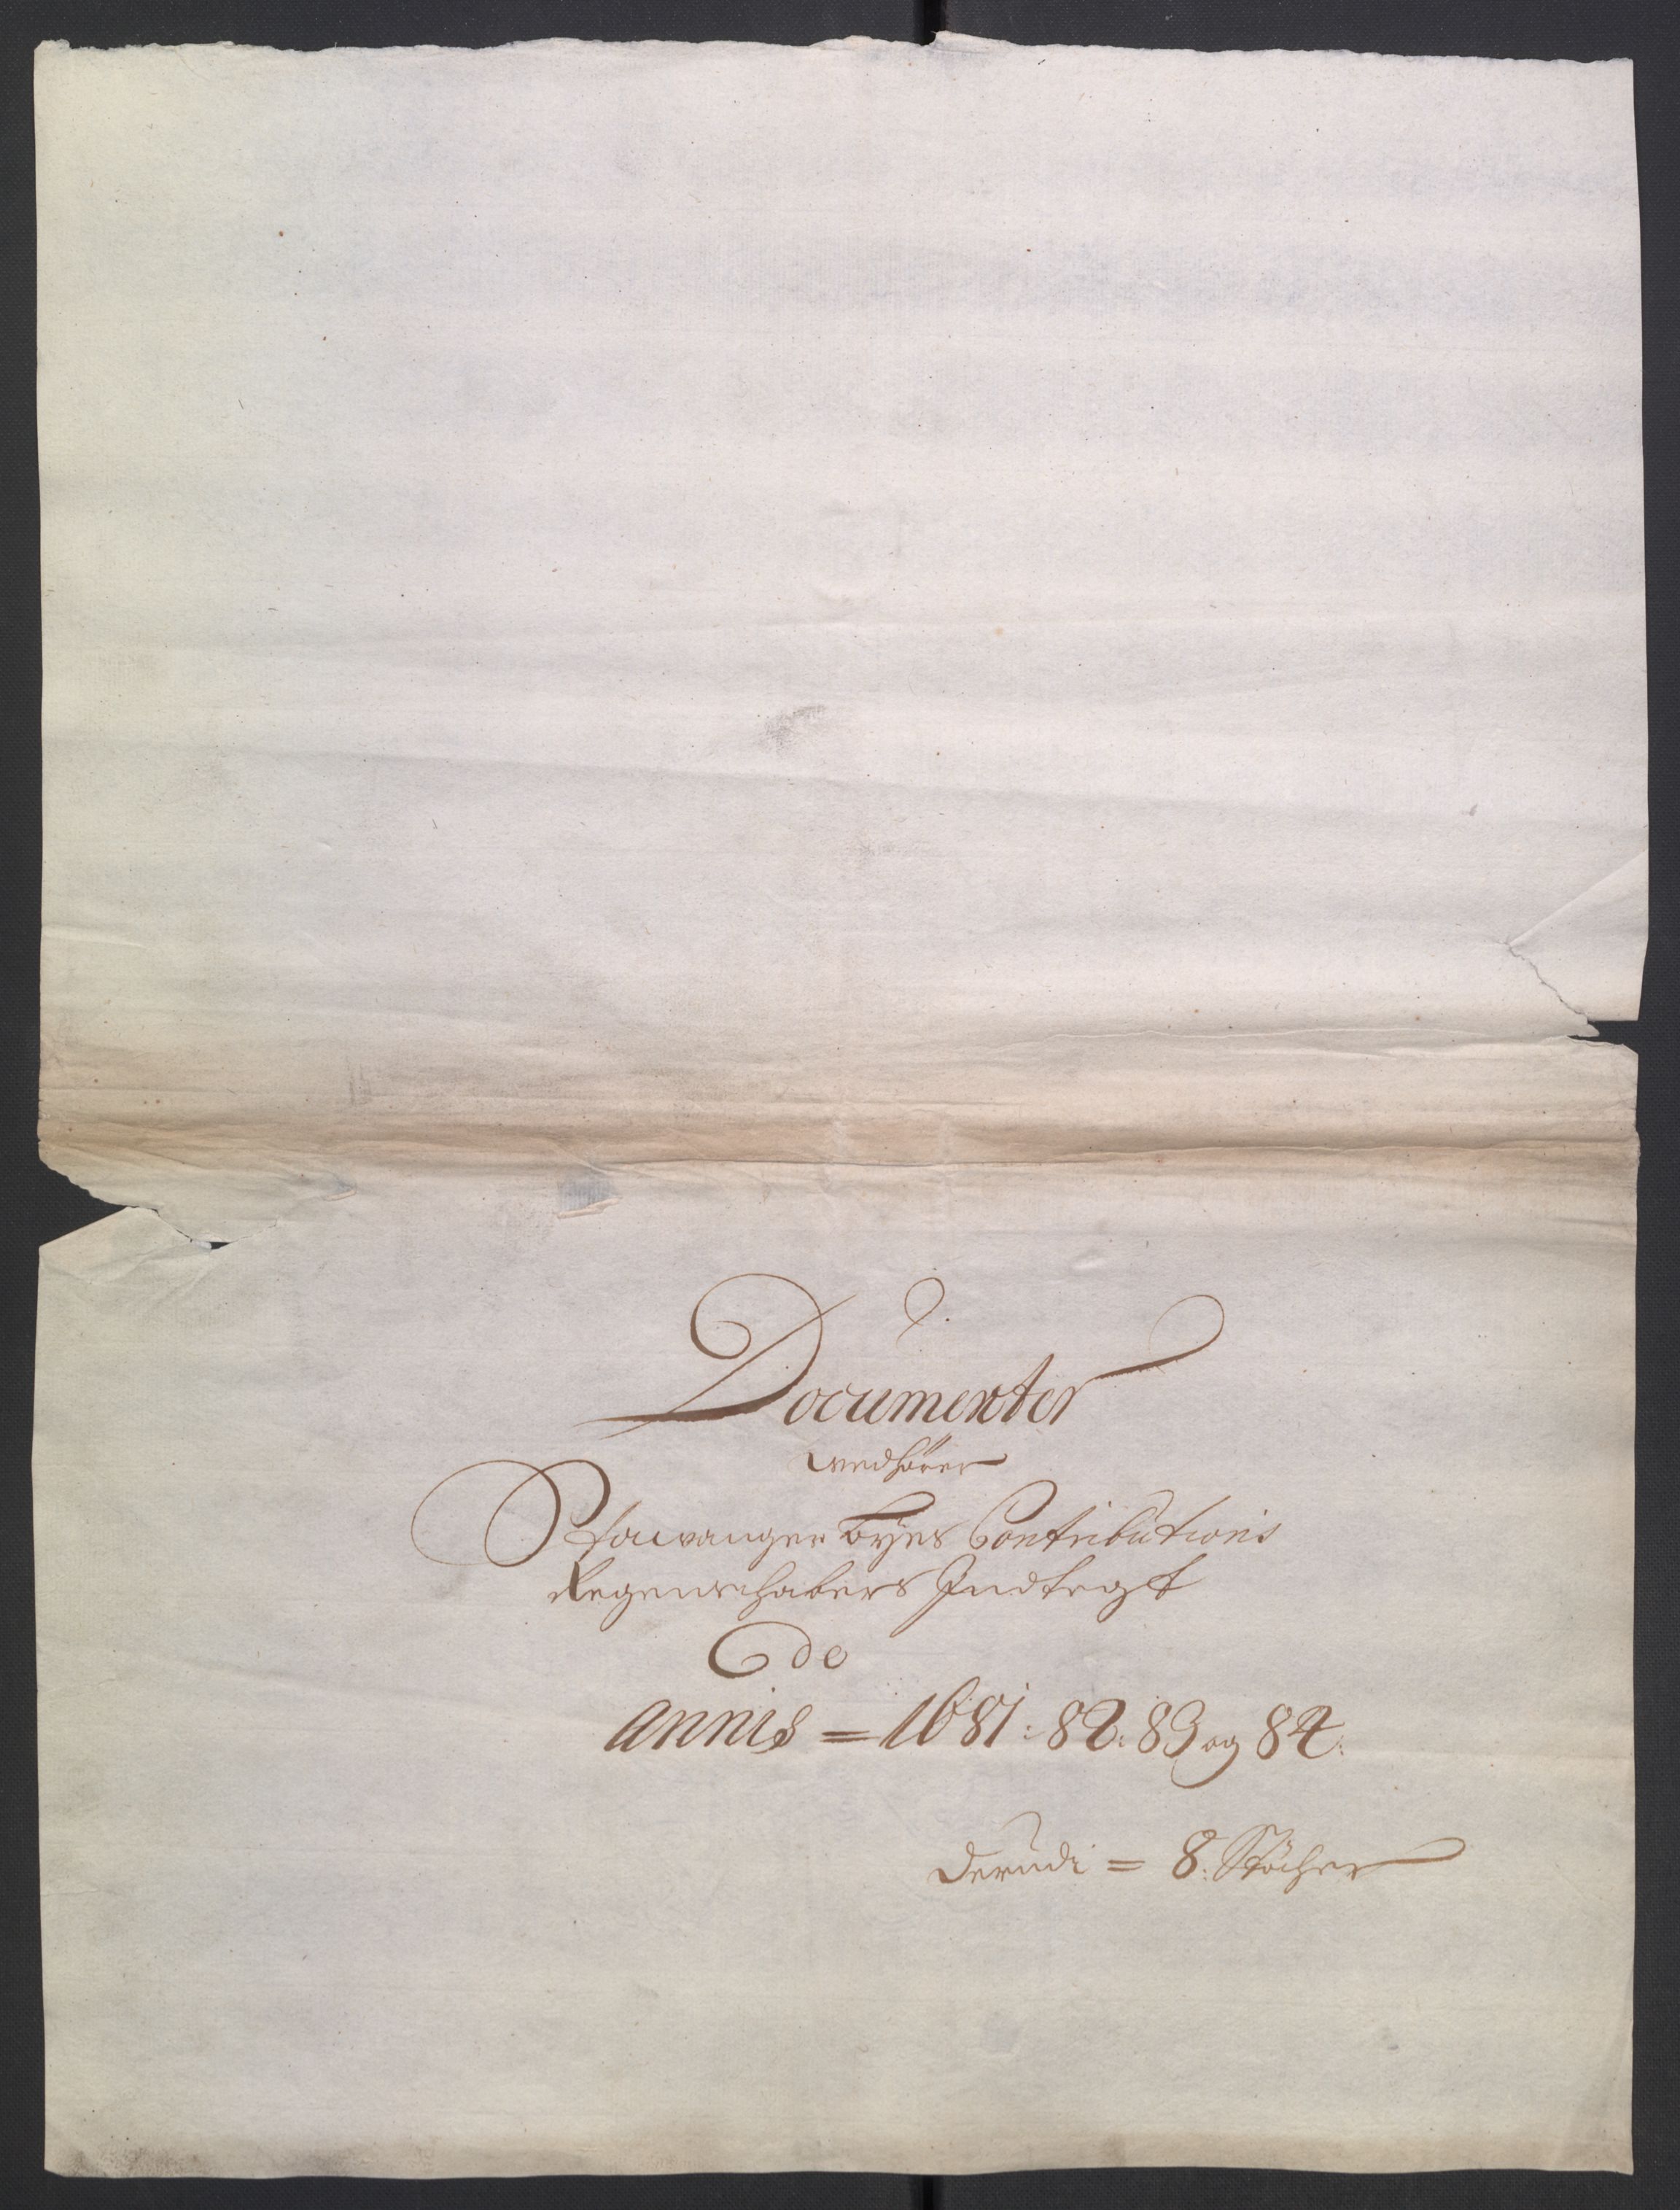 Documenter
Vedhörer
Stawanger Byes Contributions
Regenschabers Indtegt
de
annis = 1681: 82: 83 og 84:
Derudi = 8. Støcher